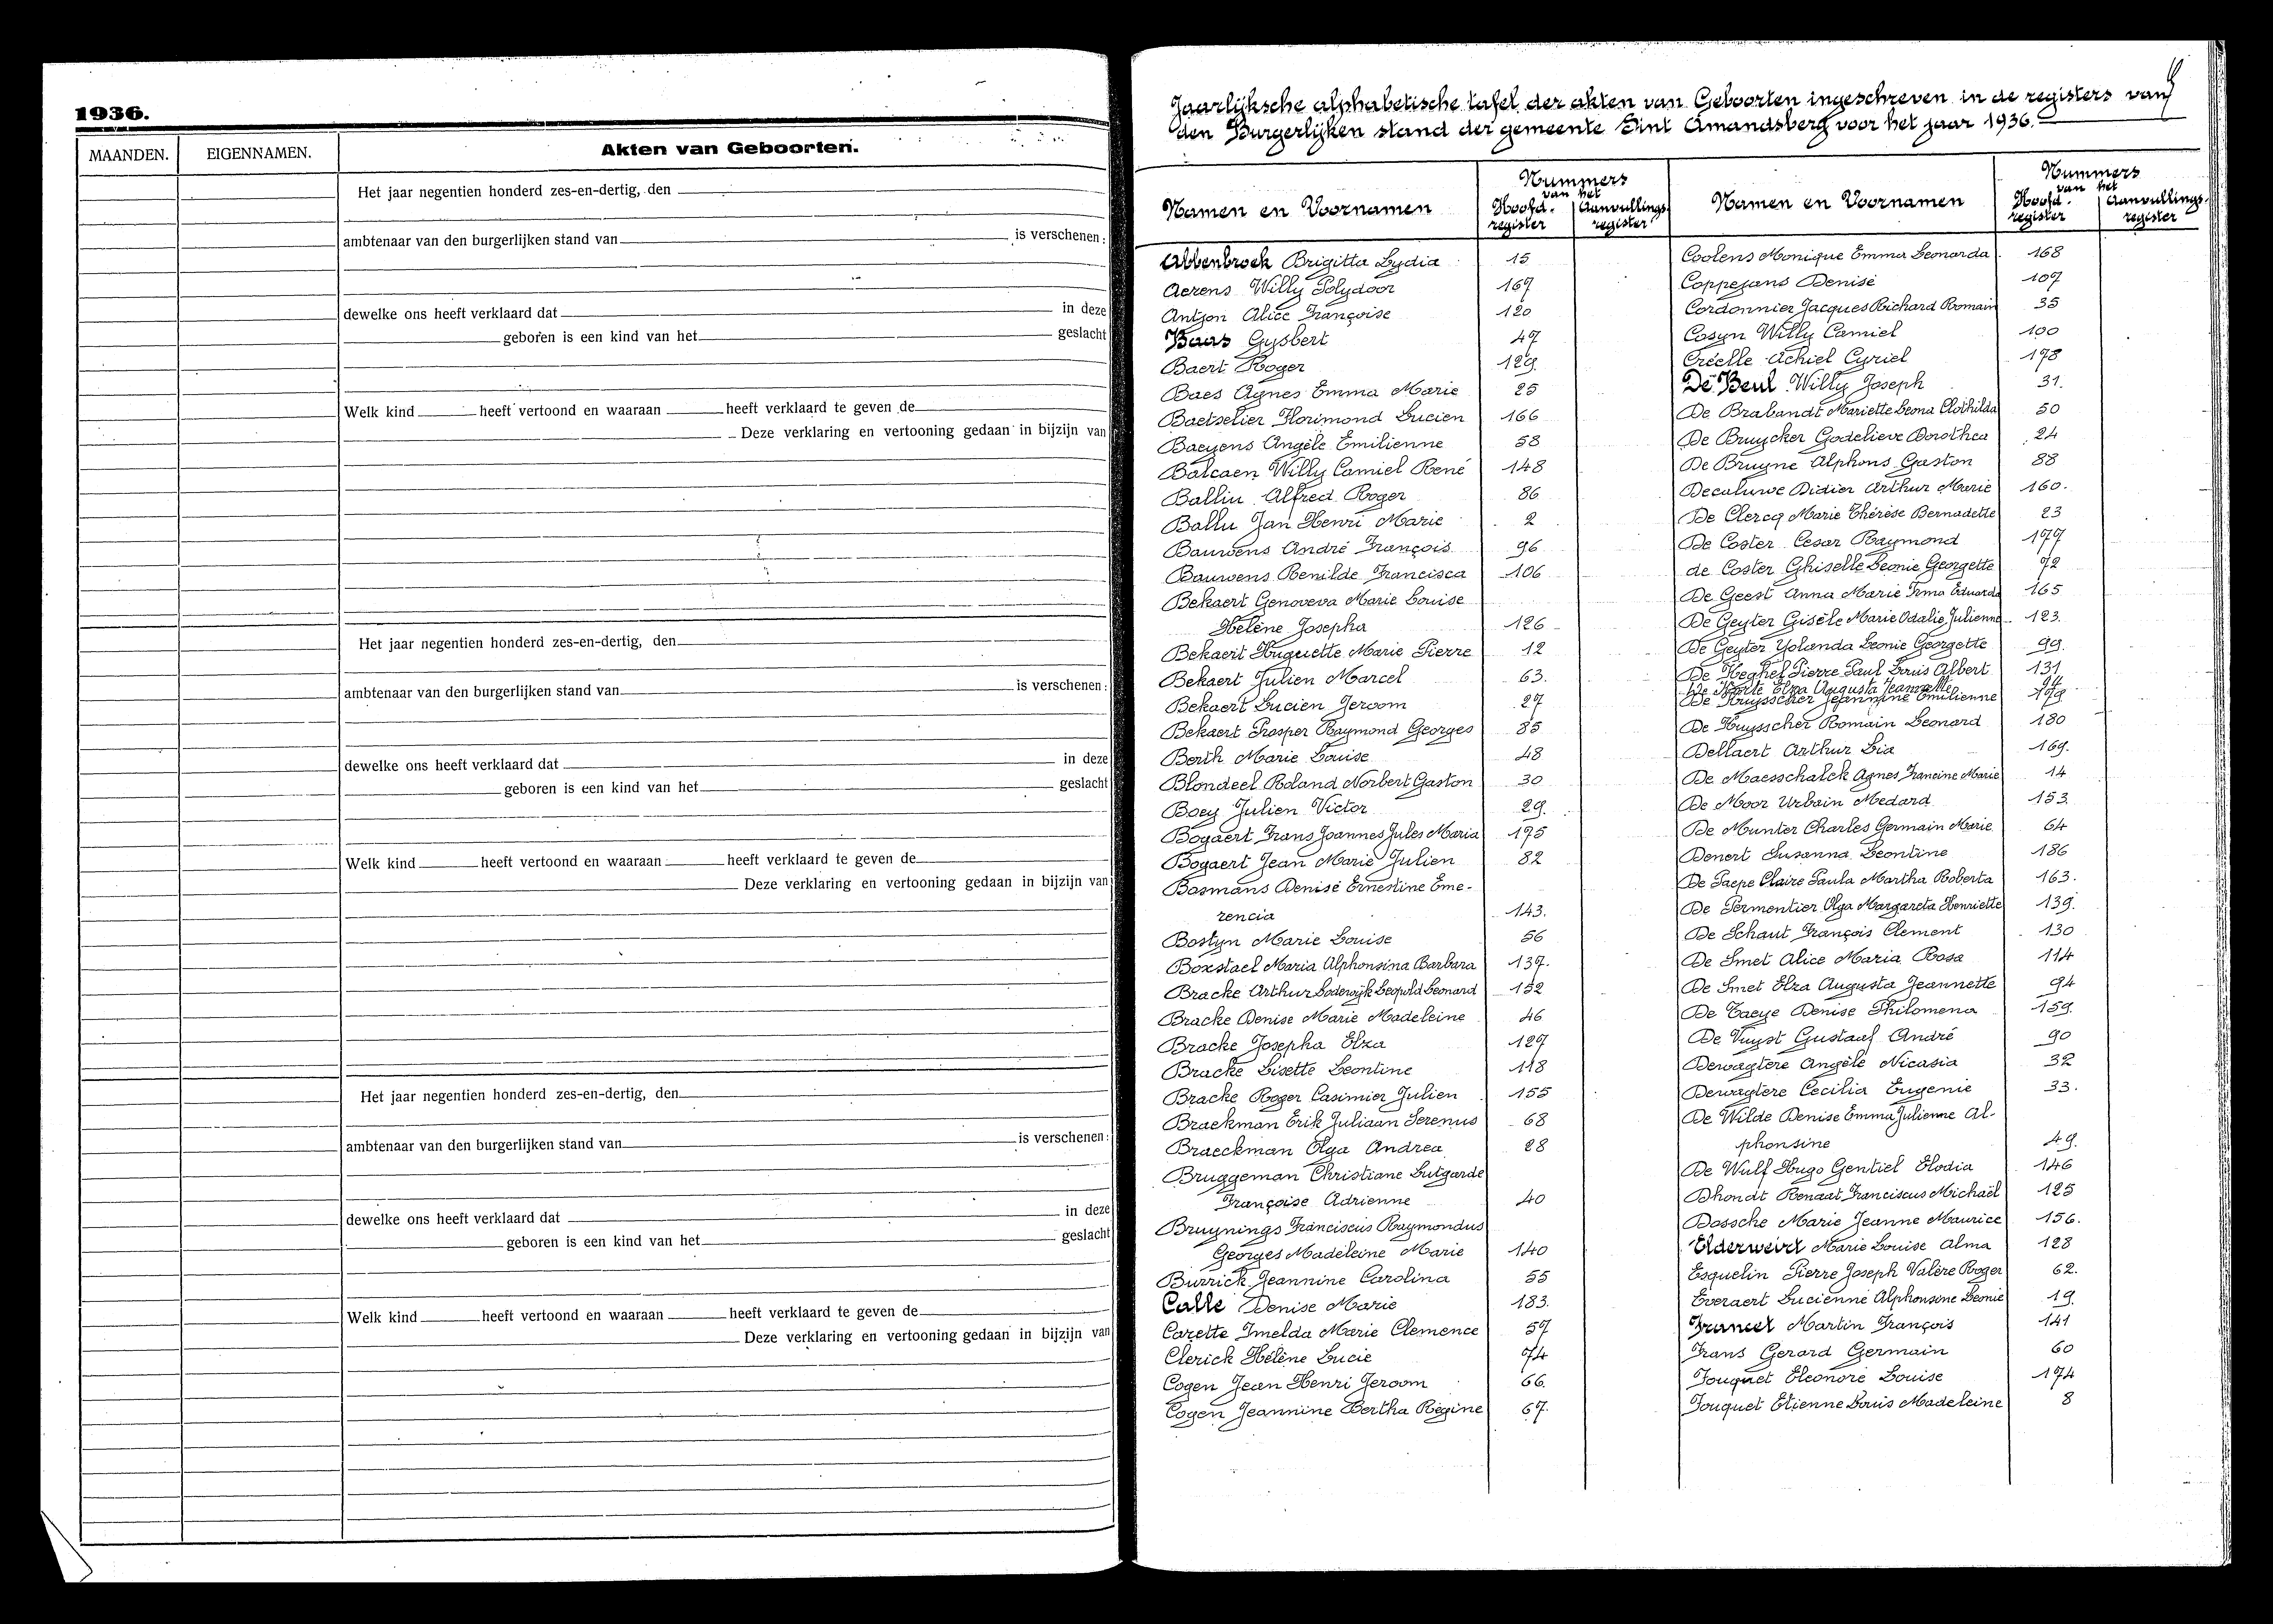 1936.
MAANDEN. EIGENNAMEN. Akten van Geboorten.
Het jaar negentien honderd zes-en-dertig, den
ambtenaar van den burgerlijken stand van is verschenen:
dewelke ons heeft verklaard dat in deze
geboren is een kind van het geslacht
Welk kind heeft vertoond en waaraan heeft verklaard te geven de
Deze verklaring en vertooning gedaan in bijzijn van
Het jaar negentien honderd zes-en-dertig, den
ambtenaar van den burgerlijken stand van is verschenen:
dewelke ons heeft verklaard dat in deze
geboren is een kind van het geslacht
Welk kind heeft vertoond en waaraan heeft verklaard te geven de
Deze verklaring en vertooning gedaan in bijzijn van
Het jaar negentien honderd zes-en-dertig, den
ambtenaar van den burgerlijken stand van is verschenen:
dewelke ons heeft verklaard dat in deze
geboren is een kind van het geslacht
Welk kind heeft vertoond en waaraan heeft verklaard te geven de
Deze verklaring en vertooning gedaan in bijzijn van
Jaarlijksche alphabetische tafel der akten van Geboorten ingeschreven in de registers van
den Burgerlijken stand der gemeente Sint Amandsberg voor het jaar 1936.
Namen en Voornamen
Nummers
van het
Hoofd-register
Aanvullings-register
Abbenbroek Brigitta Lydia 15
Aerens Willy Polydoor 167
Antjon Alice Françoise 120
Baars Gysbert 47
Baert Roger 129.
Baes Agnes Emma Marie 25
Baetselier Florimond Lucien 166
Baeyens Angèle Emilienne 58
Balcaen Willy Camiel René 148
Balliu Alfred Roger 86
Ballu Jan Henri Marie 2
Bauwens André François 96
Bauwens Renilde Francisca 106
Bekaert Genoveva Marie Louise
Hélène Josepha 126
Bekaert Huguette Marie Pierre 12
Bekaert Julien Marcel 63.
Bekaert Lucien Jeroom 27
Bekaert Prosper Raymond Georges 85
Berth Marie Louise 48
Blondeel Roland Norbert Gaston 30
Boey Julien Victor 29.
Bogaert Frans Joannes Jules Maria 175
Bogaert Jean Marie Julien 82
Bosmans Denise Ernestine Eme-
rencia 143.
Bostyn Marie Louise 56
Boxstael Maria Alphonsina Barbara 137.
Bracke Arthur Lodewijk Leopold Leonard 152
Bracke Denise Marie Madeleine 46
Bracke Josepha Elza 127
Bracke Lisette Leontine 118
Bracke Roger Casimier Julien 155
Braekman Erik Juliaan Serenus 68
Braeckman Olga Andrea 28
Bruggeman Christiane Lutgarde
Françoise Adrienne 40
Bruynings Franciscus Raymondus
Georges Madeleine Marie 140
Burrick Jeannine Carolina 55
Calle Denise Marie 183.
Carette Imelda Marie Clemence 57
Clerick Hélène Lucie 74
Cogen Jean Henri Jeroom 66.
Cogen Jeannine Bertha Régine 67.
Namen en Voornamen
Nummers
van het
Hoofd-register
Aanvullings-register
Coolens Monique Emma Leonarda 168
Coppejans Denise 107
Cordonnier Jacques Richard Romain 35
Cosyn Willy Camiel 100
Créelle Achiel Cyriel 178
De Beul Willy Joseph 31.
De Brabandt Mariette Leona Clothilda 50
De Bruycker Godelieve Dorothea 24
De Bruyne Alphons Gaston 88
Decaluwe Didier Arthur Marie 160.
De Clercq Marie Thérèse Bernadette 23
De Coster Cesar Raymond 177
de Coster Ghiselle Leonie Georgette 72
De Geest Anna Marie Irma Eduarda 165
De Geyter Gisèle Marie Odalie Julienne 123.
De Geyter Yolanda Leonie Georgette 99.
De Heghel Pierre Paul Louis Albert 131
Elza Augusta Jeannette 94
De Huysscher Jeannine Emilienne 179
De Huysscher Romain Leonard 180
Dellaert Arthur Lia 169.
De Maesschalck Agnes Francine Marie 14
De Moor Urbain Medard 153
De Munter Charles Germain Marie 64
Denert Susanna Leontine 186
De Paepe Claire Paula Martha Roberta 163.
De Permentier Olga Margareta Henriette 139.
De Schaut François Clement 130
De Smet Alice Maria Rosa 114
De Smet Elza Augusta Jeannette 94
De Taeye Denise Philomena 159.
De Vuyst Gustaaf André 90
Dewagtere Angèle Nicasia 32
Dewagtere Cecilia Eugenie 33.
De Wilde Denise Emma Julienne Al-
phonsine 49.
De Wulf Hugo Gentiel Elodia 146
Dhondt Renaat Franciscus Michaël 125
Dossche Marie Jeanne Maurice 156.
Elderweirt Marie Louise Alma 128
Esquelin Pierre Joseph Valère Roger 62.
Everaert Lucienne Alphonsine Leonie 19.
Francet Martin François 141
Frans Gerard Germain 60
Fouquet Eleonore Louise 174
Fouquet Etienne Louis Madeleine 8